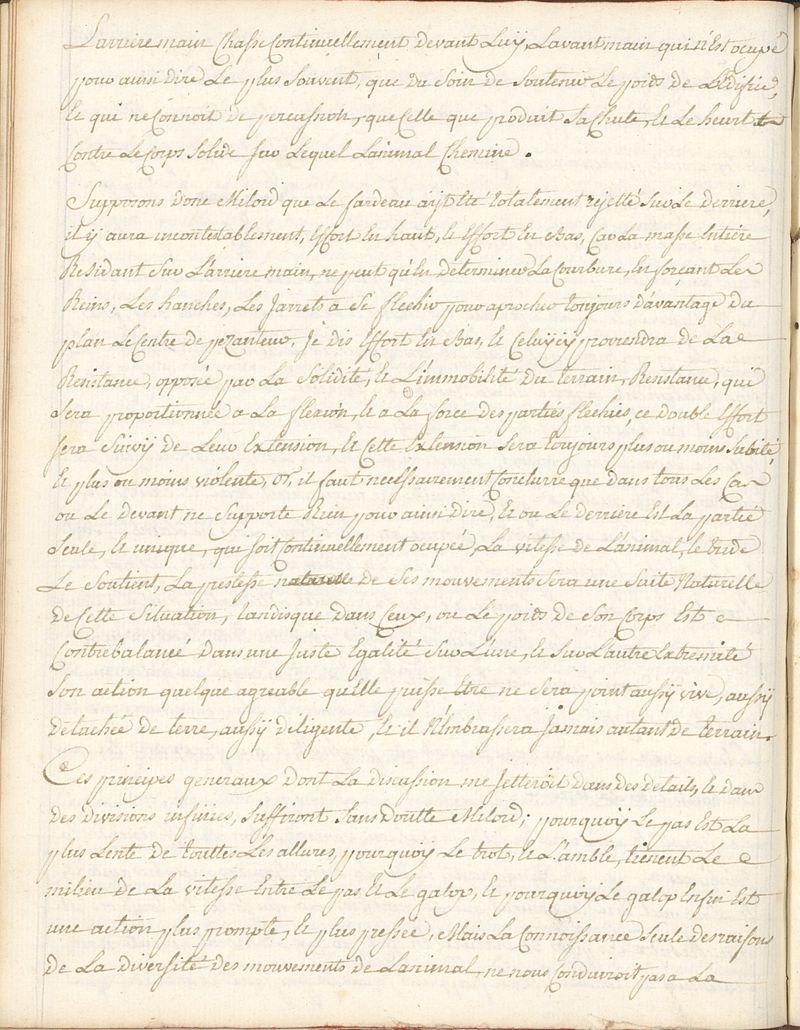 L'arriere main Chasse Continuellement devant Luÿ, L'avant main qui n'Est ocupé
pour ainsi dire Le plus Souvent, que du Soin de Soutenir Le poids de L'édifice,
Et qui ne Connoit de percussion, que Celle que produit Sa Chute, Et Le heurt
Contre Le Corps Solide sur Lequel L'animal Chemine.
Supposons donc Milord que Le fardeau aÿt Eté totalement rejetté Sur Le derriere,
il ÿ aura incontestablement, Effort En haut, et Effort En Bas, Car La masse Entiére
Residant Sur L'arriere main, ne peut qu'En determiner La Courbure, En forçant Les
Reins, Les hanches, Les Jarrets a Se flechir pour aprocher toujours d'avantage du
plan Le Centre de pezanteur, Je dis Effort En Bas, et Celuÿ cÿ proviendra de La
Resistance, opposée par La Solidité, Et L'immobilité du terrain, Resistance, qui
Sera proportionnée a La flexion, Et a La force des parties flechies, ce double Effort
sera Suivÿ de Leur Extension, Et Cette Extension Sera toujours plus ou moins Subite,
Et plus ou moins violente, or, il faut necessairement Conclurre que dans tous Les Cas
ou Le devant ne Supporte Rien pour ainsi dire, Et ou Le derriere Est La partie
Seule, Et unique, qui soit Continuellement ocupée, La vitesse de L'animal, le tride
Le Soutient, La prestesse naturelle de Ses mouvements Sera une Suite Naturelle
de Cette Situation, tandisque dans Ceux, ou Le poids de Son Corps Est
Contrebalancé dans une Juste Egalité Sur L'une, Et Sur L'autre Extremité
Son action quelque agreable qu'Elle puisse Etre ne Sera point aussÿ vive, aussÿ
détachée de terre, aussÿ diligente, Et il N'Embrassera Jamais autant de terrain.
Ces principes generaux dont La discussion me Jetteroit dans des details, et dans
des divisions infinies, Suffiront Sans doutte Milord; pourquoÿ Le pas Est La
plus Lente de touttes Les allures, pourquoÿ Le trot, Et L'amble, tienent Le
milieu de La vitesse Entre Le pas Et Le galop, Et pourquoÿ Le galop Enfin Est
une action plus prompte, Et plus pressée, Mais La Connoissance Seule des raisons
de La diversité des mouvements de L'animal ne nous Conduiroit pas a La